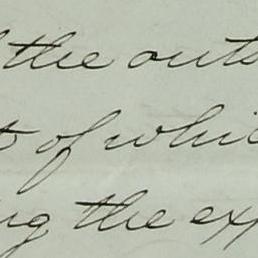 the outs
of whi
ng the ex